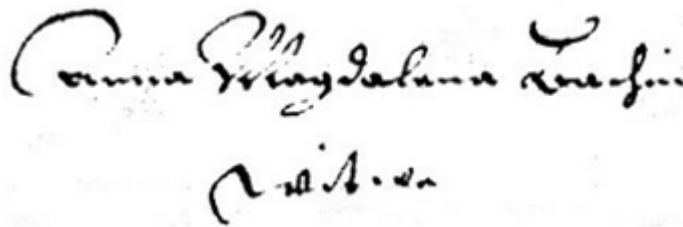 Anna Magdalena Bachin
Witwe